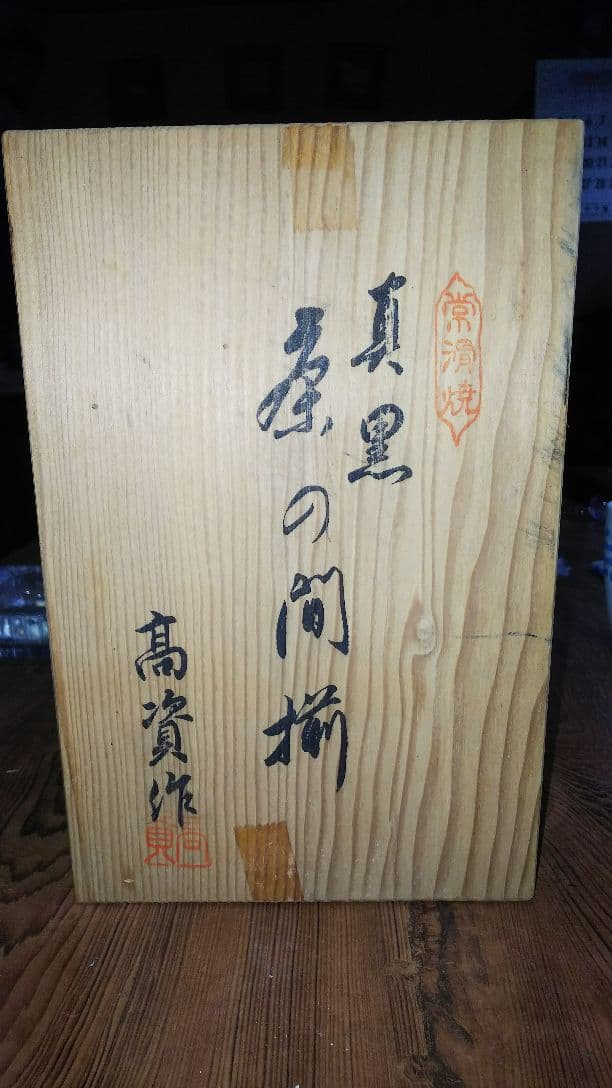 常滑焼
真黒
茶の間揃
高資作